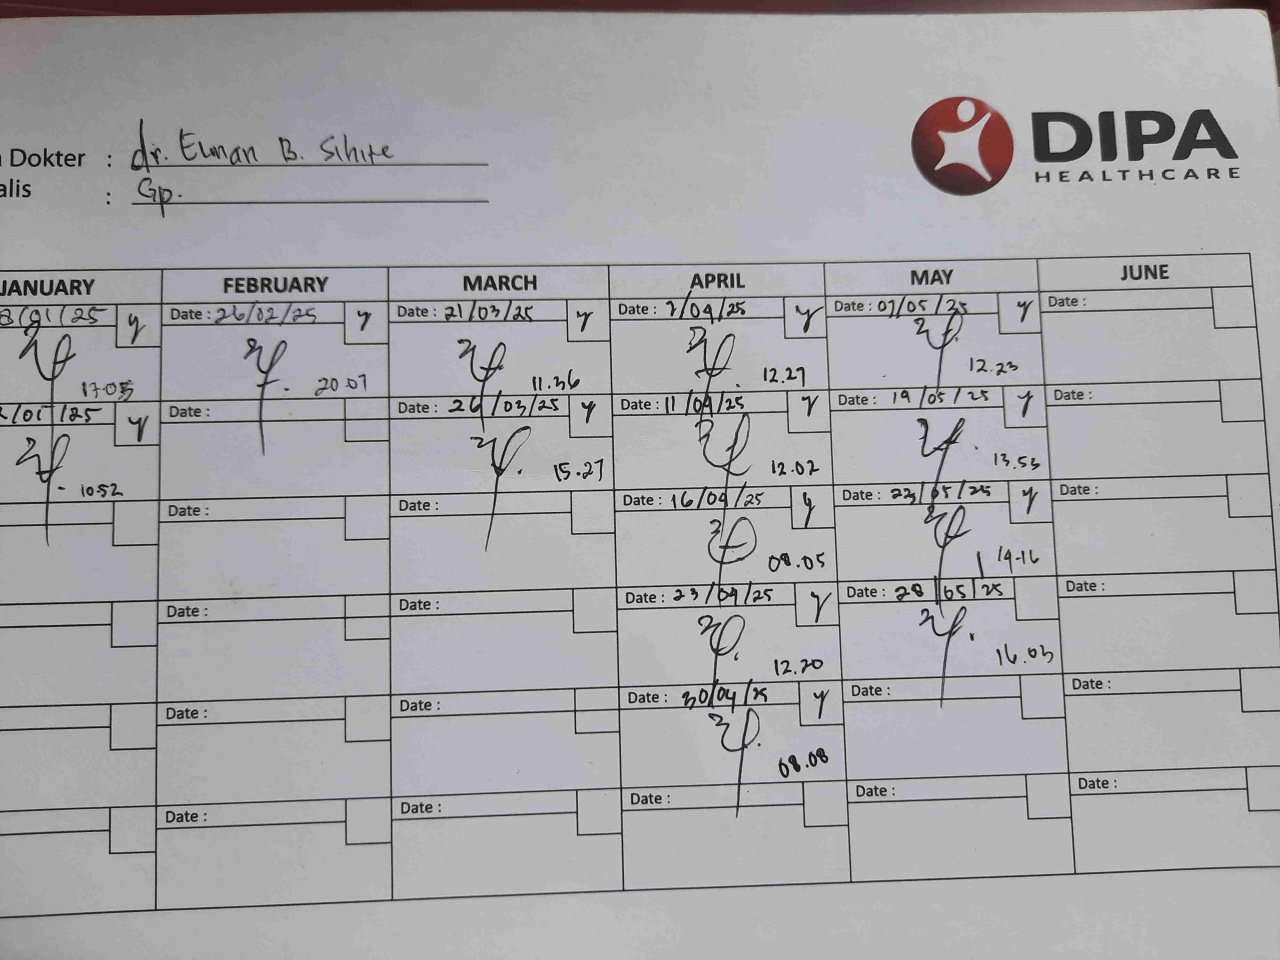 DIPA
HEALTHCARE
Dokter : dr. Elman B. Sihite
alis : Gp.
JANUARY FEBRUARY MARCH APRIL MAY JUNE
8/01/25 y Date : 26/02/25 y Date : 21/03/25 y Date : 2/04/25 y Date : 07/05/25 y Date :
17.05 20.07 11.36 12.27 12.23
/01/25 y Date : Date : 26/03/25 y Date : 11/04/25 y Date : 19/05/25 y Date :
10.52 15.27 12.02 13.53
Date : Date : Date : 16/04/25 y Date : 23/05/25 y Date :
08.05 14.16
Date : Date : Date : 23/04/25 y Date : 28/05/25 Date :
12.20 16.03
Date : Date : Date : 30/04/25 y Date : Date :
08.08
Date : Date : Date : Date : Date :